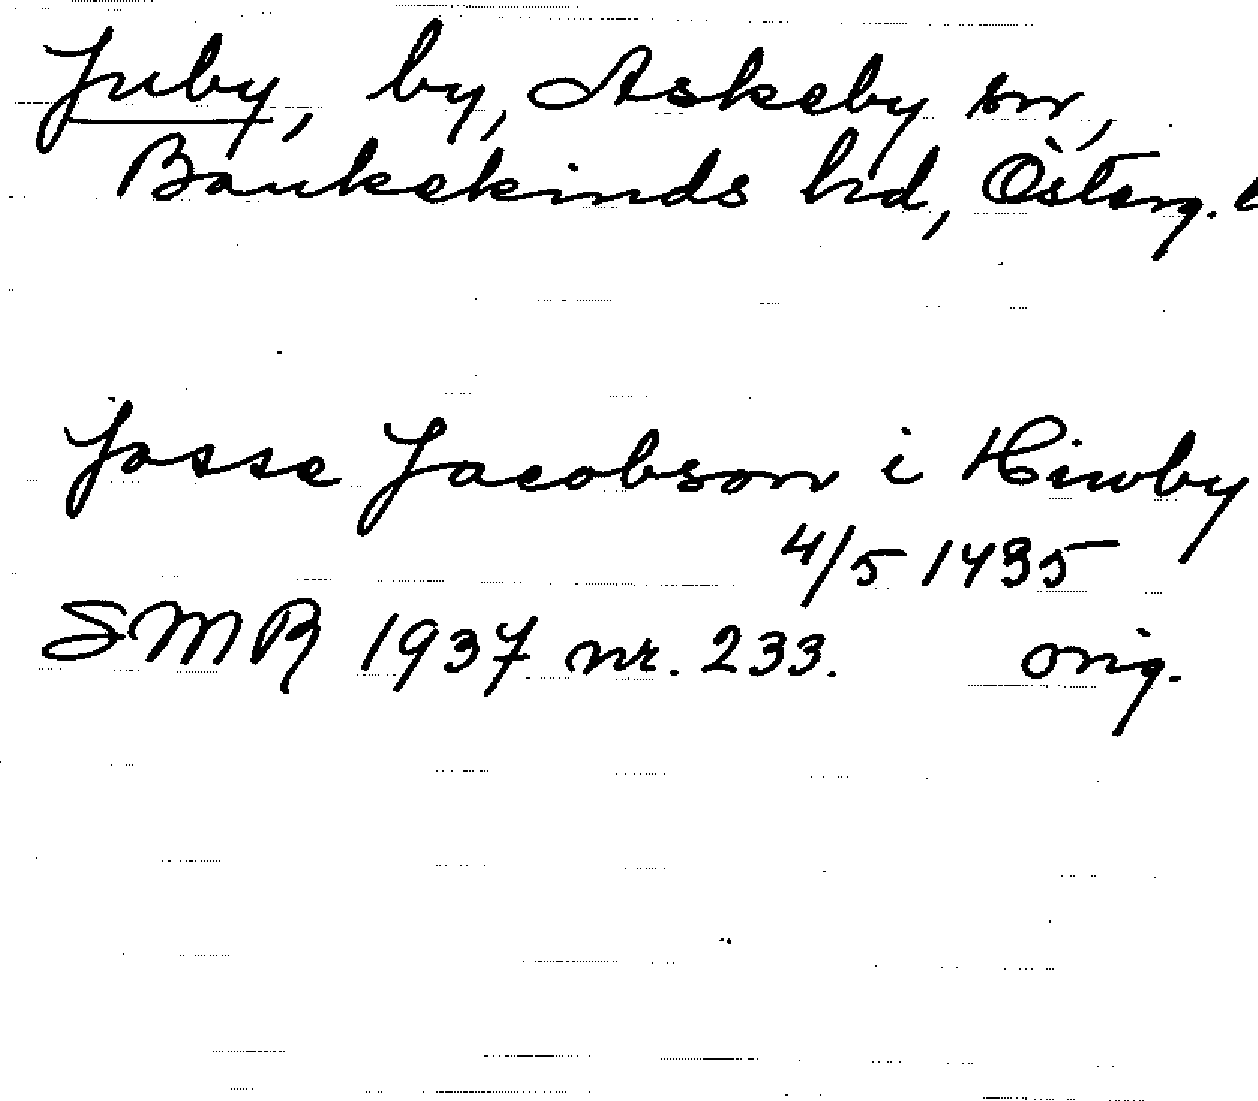 Juby, by, Askeby sn,
Bankekinds hd, Österg.
Josse Jacobson i Hiwby
4/5 1435
SMR 1937 nr. 233. orig.